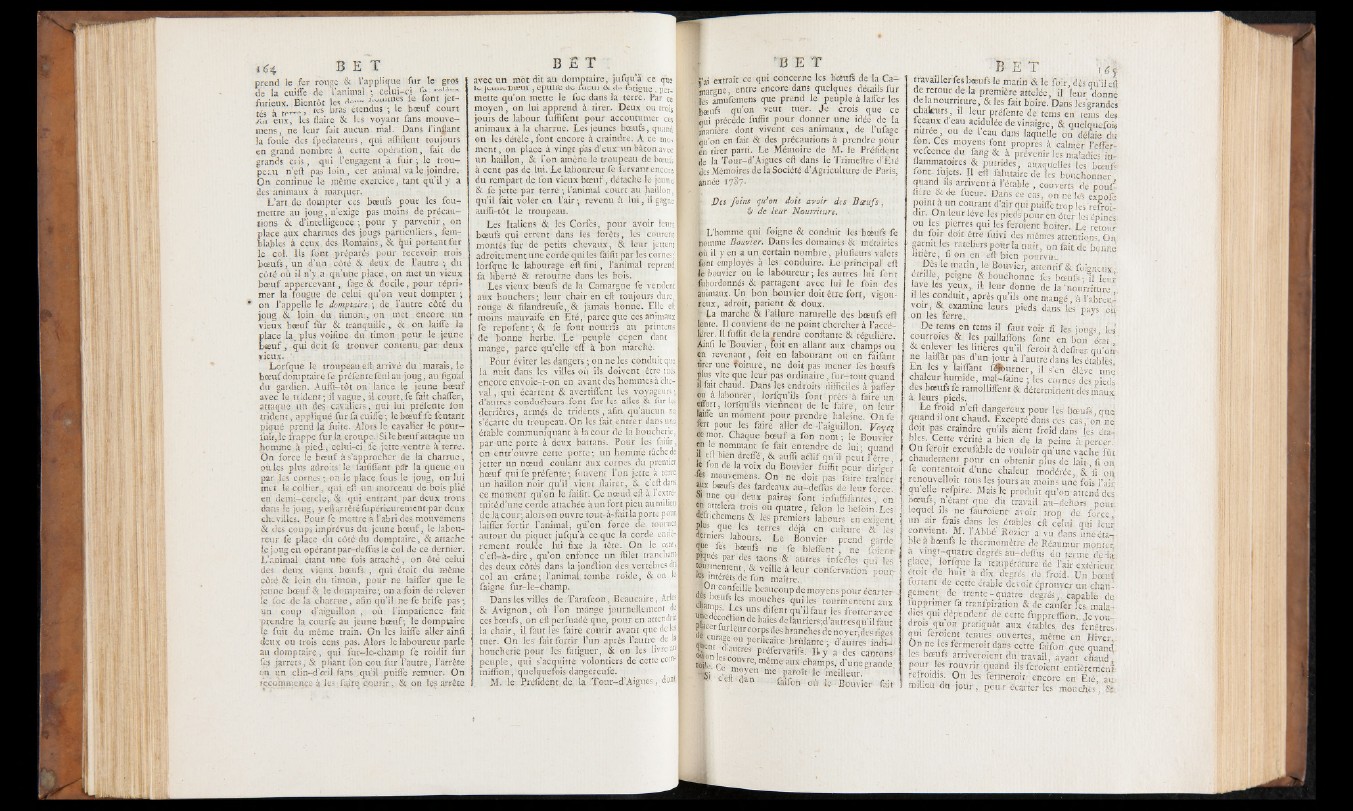 164 BET
prend le fer rouge & l'applique sur le gros
de la cuisse de l'animal ; celui-ci se
furieux. Bientôt les hommes se sont jet-
tés à les bras étendus ; le bœuf court
eux, les flaire & les voyant sans mouve-
mens, ne leur fait aucun mal. Dans l'instant
la foule des spectateurs, qui assistent toujours
en grand nombre à cette opération, fait de
grands cris, qui l'engagent à fuir ; le trou-
peau n'est pas loin, cet animal va le joindre.
On continue le même exercice, tant qu'il y a
des animaux à marquer.
L'art de dompter ces bœufs pour les sou-
mettre au joug, n'exige pas moins de précau-
tions & d'intelligence ; pour y parvenir, on
place aux charrues des jougs particuliers, sem-
blables à ceux des Romains, & qui portent sur
le col. Ils sont préparés pour recevoir trois
bœufs, un d'un côté & deux de l'autre ; du
côté où il n'y a qu'une place, on met un vieux
bœuf appercevant, sage & docile, pour répri-
mer la fougue de celui qu'on veut dompter ;
on l'appelle le domptaire ; de l'autre côté du
joug & loin du timon, on met encore un
vieux bœuf sûr & tranquille, & on laisse la
place la plus voisine du timon pour le jeune
bœuf, qui doit se trouver contenu par deux
vieux.
Lorsque le troupeau est arrivé du marais, le
bœuf domptaire se présente seul au joug, au signal
du gardien. Aussi-tôt on lance le jeune bœuf
avec le trident ; il vague, il court, se fait chasser,
attaque un des cavaliers, qui lui présente son
trident, appliqué sur sa cuisse ; le bœuf se sentant
piqué prend la fuite. Alors le cavalier le pour-
suit, le frappe sur la croupe. Si le bœuf attaque un
homme à pied, celui-ci se jette ventre à terre.
On force le bœuf à s'approcher de la charrue,
où les plus adroits le saisissent par la queue ou
par les cornes ; on le place sous le joug, on lui
met le collier, qui est un morceau de bois plié
en demi-cercle, & qui entrant par deux trous
dans le joug, y est arrêté supérieurement par deux
chevilles. Pour se mettre à l'abri des mouvemens
& des coups imprévus du jeune bœuf, le labou-
reur se place du côté du domptaire, & attache
le joug en opérant par-dessus le col de ce dernier.
L'animal étant une fois attaché, on ôte celui
des deux vieux bœufs, qui étoit du même
côté & loin du timon, pour ne laisser que le
jeune bœuf & le domptaire ; on a soin de relever
le soc de la charrue, afin qu'il ne se brise pas ;
un coup d'aiguillon, ou l'impatience fait
prendre la course au jeune bœuf ; le domptaire
le suit du même train. On les laisse aller ainsi
deux ou trois cens pas. Alors le laboureur parle
au domptaire, qui sur-le-champ se roidit sur
ses jarrets, & pliant son cou sur l'autre, l'arrête
en un clin-d'œil sans qu'il puisse remuer. On
recommence à les faire courir, & on les arrête
BET
avec un mot dit au domptaire, jusqu'à ce que
le jeune bœuf, épuisé de sueur & de fatigue, per-
mette qu'on mette le soc dans la terre. Par ce
moyen, on lui apprend à tirer. Deux ou trois
jours de labour suffisent pour accoutumer ces
animaux à la charrue. Les jeunes bœufs, quand
on les détèle, sont encore à craindre. A ce mo-
ment, on place à vingt pas d'eux un bâton avec
un haillon, & l'on amène le troupeau de bœufs
à cent pas de lui. Le laboureur se servant encore
du rempart de son vieux bœuf, détache le jeune
& se jette par terre ; l'animal court au haillon,
qu'il fait voler en l'air ; revenu à lui, il gagne
aussi-tôt le troupeau.
Les Italiens & les Corses, pour avoir leurs
bœufs qui errent dans les forêts, les courent
montés sur de petits chevaux, & leur jettent
adroitement une corde qui les saisit par les cornes ;
lorsque le labourage est fini, l'animal reprend
sa liberté & retourne dans les bois.
Les vieux bœufs de la Camargue se vendent
aux bouchers ; leur chair en est toujours dure,
rouge & filandreuse, & jamais bonne. Elle est
moins mauvaise en Été, parce que ces animaux
se reposent ; & se sont nourris au printems
de bonne herbe. Le peuple cependant en
mange, parce qu'elle est à bon marché.
Pour éviter les dangers ; on ne les conduit que
la nuit dans les villes où ils doivent être tués
encore envoie-t-on en avant des hommes à che-
val, qui écartent & avertissent les voyageurs ;
d'autres conducteurs sont sur les aîles & sur les
derrières, armés de tridents, afin qu'aucun ne
s'écarte du troupeau. On les fait entrer dans une
étable communiquant à la cour de la boucherie,
par une porte à deux battans. Pour les saisir,
on entr'ouvre cette porte ; un homme tâche de
jetter un nœud coulant aux cornes du premier
bœuf qui se présente ; souvent l'on jette à terre
un haillon noir qu'il vient flairer, & c'est dans
ce moment qu'on le saisit. Ce nœud est à l'extré-
mité d'une corde attachée à un fort pieu au milieu
de la cour ; alors on ouvre tout-à-fait la porte pour
laisser sortir l'animal, qu'on force de tourner
autour du piquet jusqu'à ce que la corde entiè-
rement roulée lui fixe la tête. On le tue,
c'est-à-dire, qu'on enfonce un stilet tranchant
des deux côtés dans la jonction des vertebres du
col au crâne ; l'animal tombe roide, & on le
saigne sur-le-champ.
Dans les villes de Tarascon, Beaucaire, Arles
& Avignon, où l'on mange journellement de
ces bœufs, on est persuadé que, pour en attendrir
la chair, il faut les faire courir avant que de les
tuer. On les fait sortir l'un après l'autre de la
boucherie pour les fatiguer, & on les livre au
peuple, qui s'acquitte volontiers de cette com-
mission, quelquefois dangereuse.
M. le Président de la Tour-d'Aigues, dont
BET
j'ai extrait ce qui concerne les bœufs de la Ca-
margue, entre encore dans quelques détails sur
les amusemens que prend le peuple à lasser les
bœufs qu'on veut tuer. Je crois que ce
qui précède suffit pour donner une idée de la
manière dont vivent ces animaux, de l'usage
qu'on en fait & des précautions à prendre pour
en tirer parti. Le Mémoire de M. le Président
de la Tour-d'Aigues est dans le Trimestre d'Été
des Mémoires de la Société d'Agriculture de Paris,
année 1787.
Des soins qu'on doit avoir des Bœufs,
& de leur Nourriture.
L'homme qui soigne & conduit les bœufs se
nomme Bouvier. Dans les domaines & métairies
où il y en a un certain nombre, plusieurs valets
sont employés à les conduire. Le principal est
le bouvier ou le laboureur ; les autres lui sont
subordonnés & partagent avec lui le soin des
animaux. Un bon bouvier doit être fort, vigou-
reux, adroit, patient & doux.
La marche & l'allure naturelle des bœufs est
lente. Il convient de ne point chercher à l'accé-
lérer. Il suffit de la rendre constante & régulière.
Ainsi le Bouvier, soit en allant aux champs ou
en revenant, soit en labourant ou en faisant
tirer une voiture, ne doit pas mener ses bœufs
plus vîte que leur pas ordinaire, sur-tout quand
il fait chaud. Dans les endroits difficiles à passer
ou à labourer, lorsqu'ils sont près à faire un
effort, lorsqu'ils viennent de le faire, on leur
laisse un moment pour prendre haleine. On se
sert pour les faire aller de l'aiguillon. Voyez
ce mot. Chaque bœuf a son nom ; le Bouvier
en le nommant se fait entendre de lui ; quand
il est bien dressé, & aussi actif qu'il peut l'être,
le son de la voix du Bouvier suffit pour diriger
ses mouvemens. On ne doit pas faire traîner
aux bœufs des fardeaux au-dessus de leur force.
Si une ou deux paires sont insuffisantes, on
en attelera trois ou quatre, selon le besoin. Les
défrichemens & les premiers labours en exigent
plus que les terres déjà en culture & les
derniers labours. Le Bouvier prend garde
que ses bœufs ne se blessent, ne soient
piqués par des taons & autres insectes qui les
tourmentent, & veille à leur conservation pour
les intérêts de son maître.
On conseille beaucoup de moyens pour écarter
des bœufs les mouches qui les tourmentent aux
champs. Les uns disent qu'il faut les frotter avec
une décoction de baies de lauriers ; d'autres qu'il faut
placer sur leur corps des branches de noyer, des tiges
de curage ou persicaire brûlante ; d'autres indi-
quent d'autres préservatifs. Il y a des cantons
où on les couvre, même aux champs, d'une grande
toile. Ce moyen me paroît le meilleur.
Si c'est dans saison où le Bouvier fait
BET 165
travailler ses bœufs le matin & le soir, dès qu'il est
de retour de la première attelée, il leur donne
de la nourriture, & les fait boire. Dans les grandes
chaleurs, il leur présente de tems en tems des
sceaux d'eau acidulée de vinaigre, & quelquefois
nitrée ; ou de l'eau dans laquelle on délaie du
son. Ces moyens sont propres à calmer l'effer-
vescence du sang & à prévenir les maladies in-
flammatoires & putrides, auxquelles les bœufs
sont sujets. Il est salutaire de les bouchonner,
quand ils arrivent à l'étable, couverts de pous-
sière & de sueur. Dans ce cas, on ne les expose
point à un courant d'air qui puisse trop les refroi-
dir. On leur lève les pieds pour en ôter les épines
ou les pierres qui les feroient boiter. Le retour
du soir doit être suivi des mêmes attentions. On
garnit les rateliers pour la nuit, on fait de bonne
litière, si on en est bien pourvu.
Dès le matin, le Bouvier, attentif & soigneux,
étrille, peigne & bouchonne ses bœufs ; il leur
lave les yeux, il leur donne de la nourriture ;
il les conduit, après qu'ils ont mangé, à l'abreu-
voir, & examine leurs pieds dans les pays où
on les ferre.
De tems en tems il faut voir si les jougs, les
courroies & les paillassons sont en bon état,
& enlever les litières qu'il seroit à desirer qu'on
ne laissât pas d'un jour à l'autre dans les étables.
En les y laissant séjourner, il s'en élève une
chaleur humide, mal-saine ; les cornes des pieds
des bœufs se ramollissent & déterminent des maux
à leurs pieds.
Le froid n'est dangereux pour les bœufs, que
quand ils ont chaud. Excepté dans ces cas, on ne
doit pas craindre qu'ils aient froid dans les éta-
bles. Cette vérité a bien de la peine à percer.
On seroit excusable de vouloir qu'une vache fût
chaudement pour en obtenir plus de lait, si on
se contentoit d'une chaleur modérée, & si on
renouvelloit tous les jours au moins une fois l'air
qu'elle respire. Mais le produit qu'on attend des
bœufs, n'étant que du travail au-dehors pour
lequel ils ne sauroient avoir trop de force,
un air frais dans les étables est celui qui leur
convient. M. l'Abbé Rozier a vu dans une éta-
ble à bœufs le thermomètre de Réaumur monter
à vingt-quatre degrés au-dessus du terme de la
glace, lorsque la température de l'air extérieur
étoit de huit à dix degrés de froid. Un bœuf
sortant de cette étable devoit éprouver un chan-
gement de trente-quatre degrés, capable de
supprimer sa transpiration & de causer les mala-
dies qui dépendent de cette suppression. Je vou-
drois qu'on pratiquât aux étables des fenêtres
qui seroient tenues ouvertes, même en Hiver.
On ne les fermeroit dans cette saison que quand
les bœufs arriveroient du travail, ayant chaud,
pour les rouvrir quand ils seroient entièrement
refroidis. On les fermeroit encore en Été, au
milieu du jour, pour écarter les mouches, &